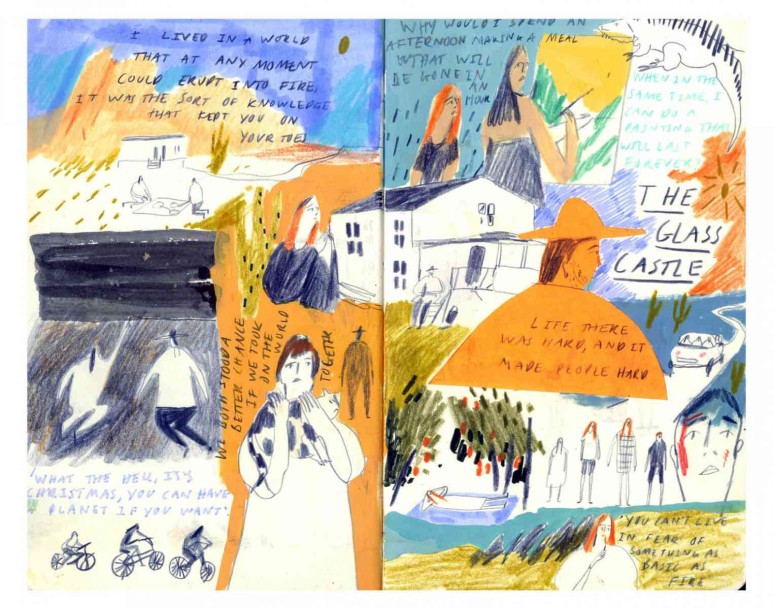 I LIVED IN A WORLD
THAT AT ANY MOMENT
COULD ERUPT INTO FIRE,
IT WAS THE SORT OF KNOWLEDGE
THAT KEPT YOU ON
YOUR TOES
WE BOTH STOOD A
BETTER CHANCE
IF WE TOOK
ON THE
WORLD
TOGETHER
'WHAT THE HELL, IT'S
CHRISTMAS, YOU CAN HAVE
A PLANET IF YOU WANT'.
WHY WOULD I SPEND AN
AFTERNOON MAKING A MEAL
THAT WILL
BE GONE IN
AN
HOUR
WHEN IN THE
SAME TIME, I
CAN DO A
PAINTING THAT
WILL LAST
FOREVER?
THE
GLASS
CASTLE
LIFE THERE
WAS HARD, AND IT
MADE PEOPLE HARD
'YOU CAN'T LIVE
IN FEAR OF
SOMETHING AS
BASIC AS
FIRE